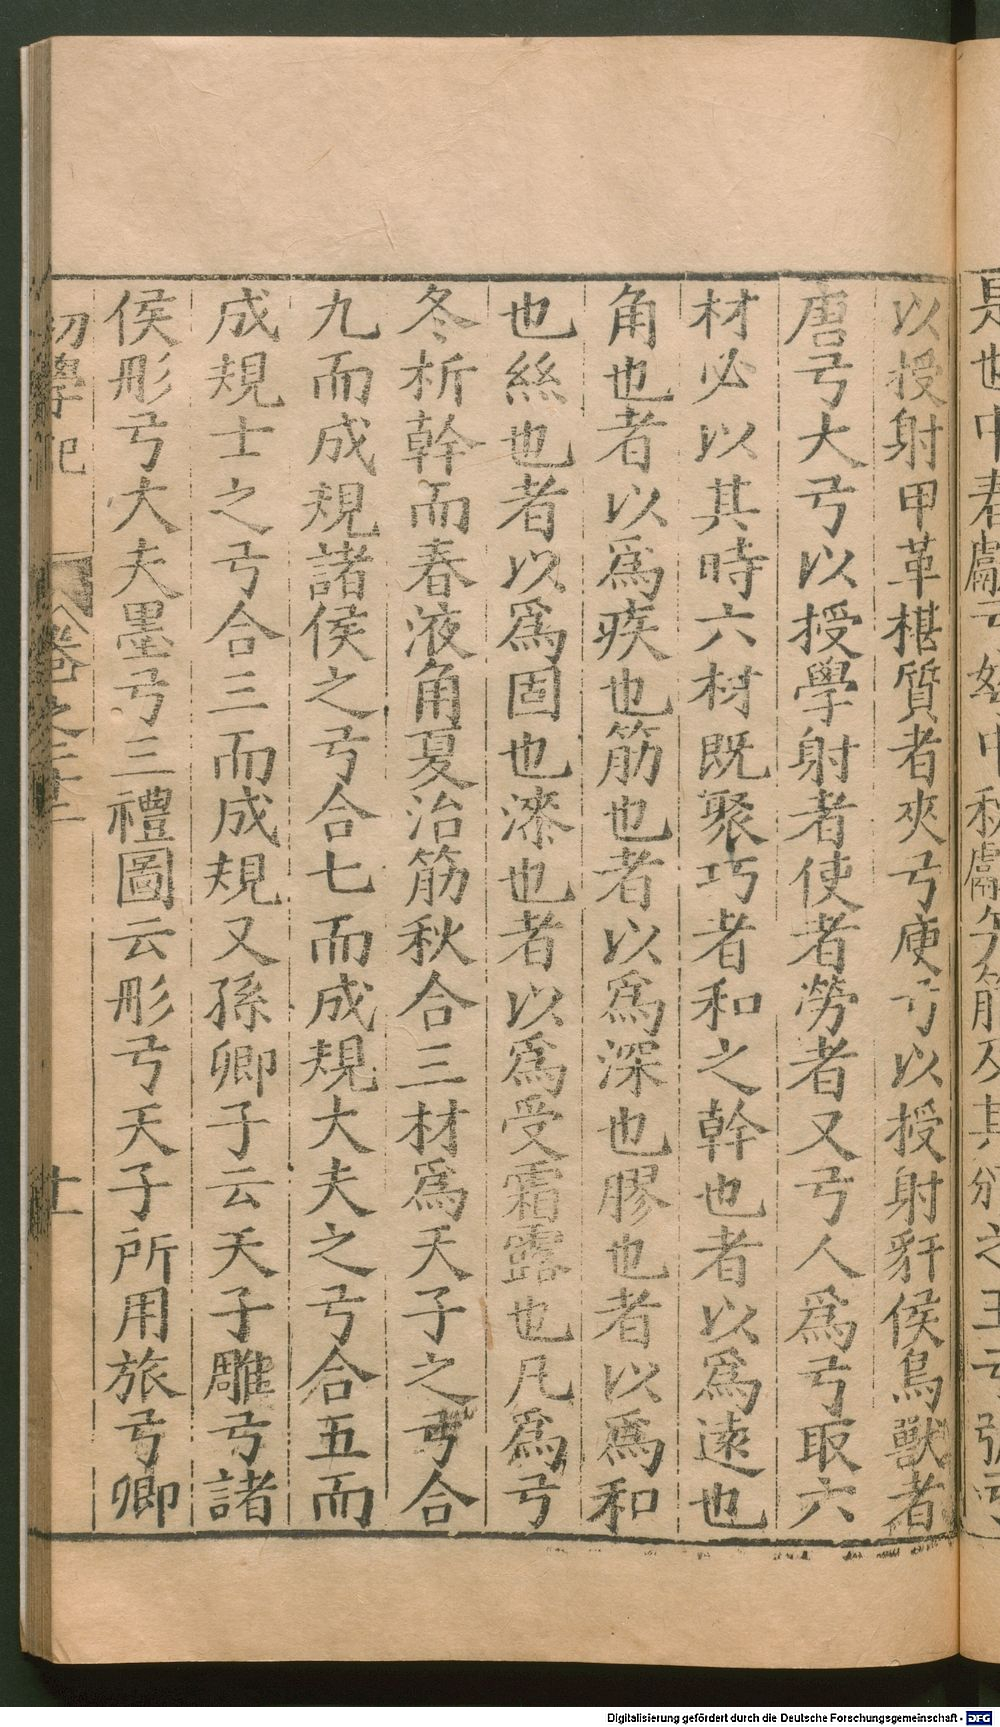 以授射甲革椹質者夾弓庾弓以授射豻侯鳥獸者
唐弓大弓以授學射者使者勞者又弓人爲弓取六
材必以其時六材既聚巧者和之幹也者以爲遠也
角也者以爲疾也筋也者以爲深也膠也者以爲和
也絲也者以爲固也漆也者以爲受霜露也凡爲弓
冬析幹而春液角夏治筋秋合三材爲天子之弓合
九而成規諸侯之弓合七而成規大夫之弓合五而
成規士之弓合三而成規又孫卿子云天子雕弓諸
侯彤弓大夫墨弓三禮圖云彤弓天子所用旅弓卿
初學記 卷之二十二 十一
Digitalisierung gefördert durch die Deutsche Forschungsgemeinschaft - DFG